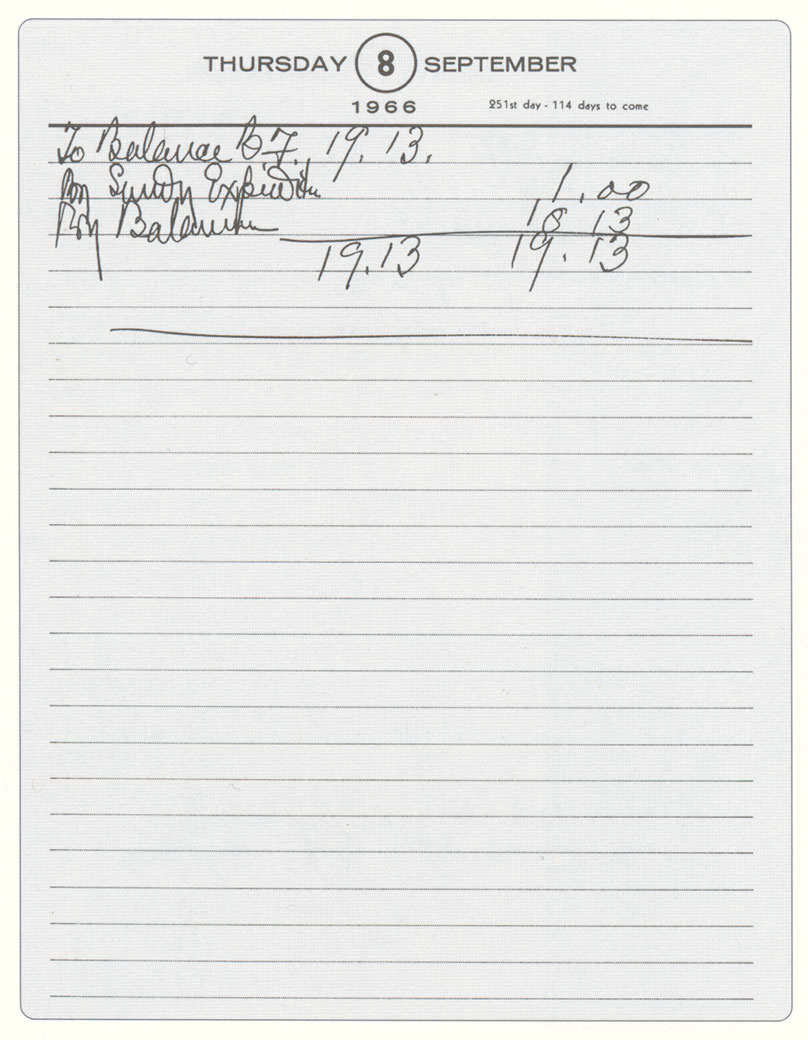 THURSDAY 8 SEPTEMBER
1966 251st day - 114 days to come
To Balance B F. 19. 13.
By Sundry 1.00
By Balance 18 13
19.13 19.13